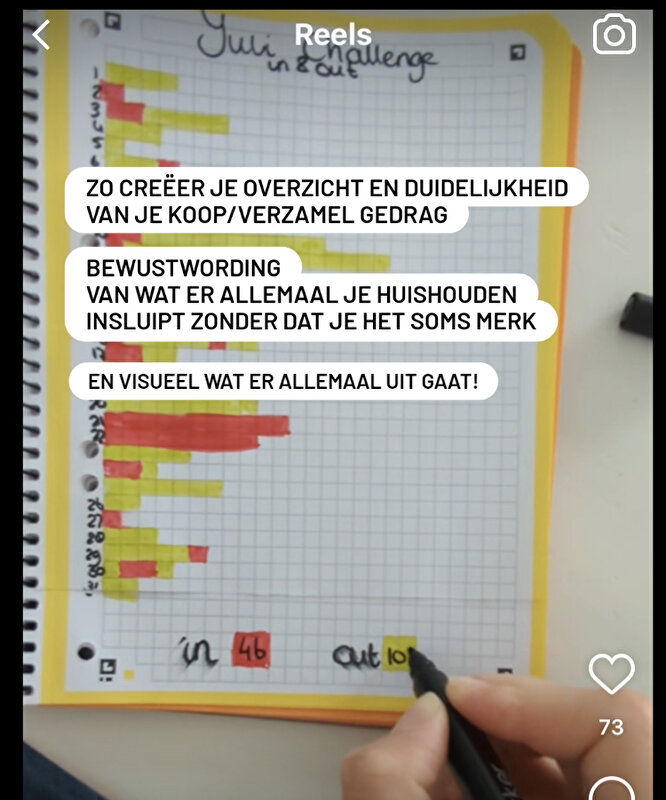 Reels
Yuli Challenge
in & out
1
2
3
4
5
6
ZO CREËER JE OVERZICHT EN DUIDELIJKHEID
VAN JE KOOP/VERZAMEL GEDRAG
BEWUSTWORDING
VAN WAT ER ALLEMAAL JE HUISHOUDEN
INSLUIPT ZONDER DAT JE HET SOMS MERK
EN VISUEEL WAT ER ALLEMAAL UIT GAAT!
26
27
29
in 46
out 10
73